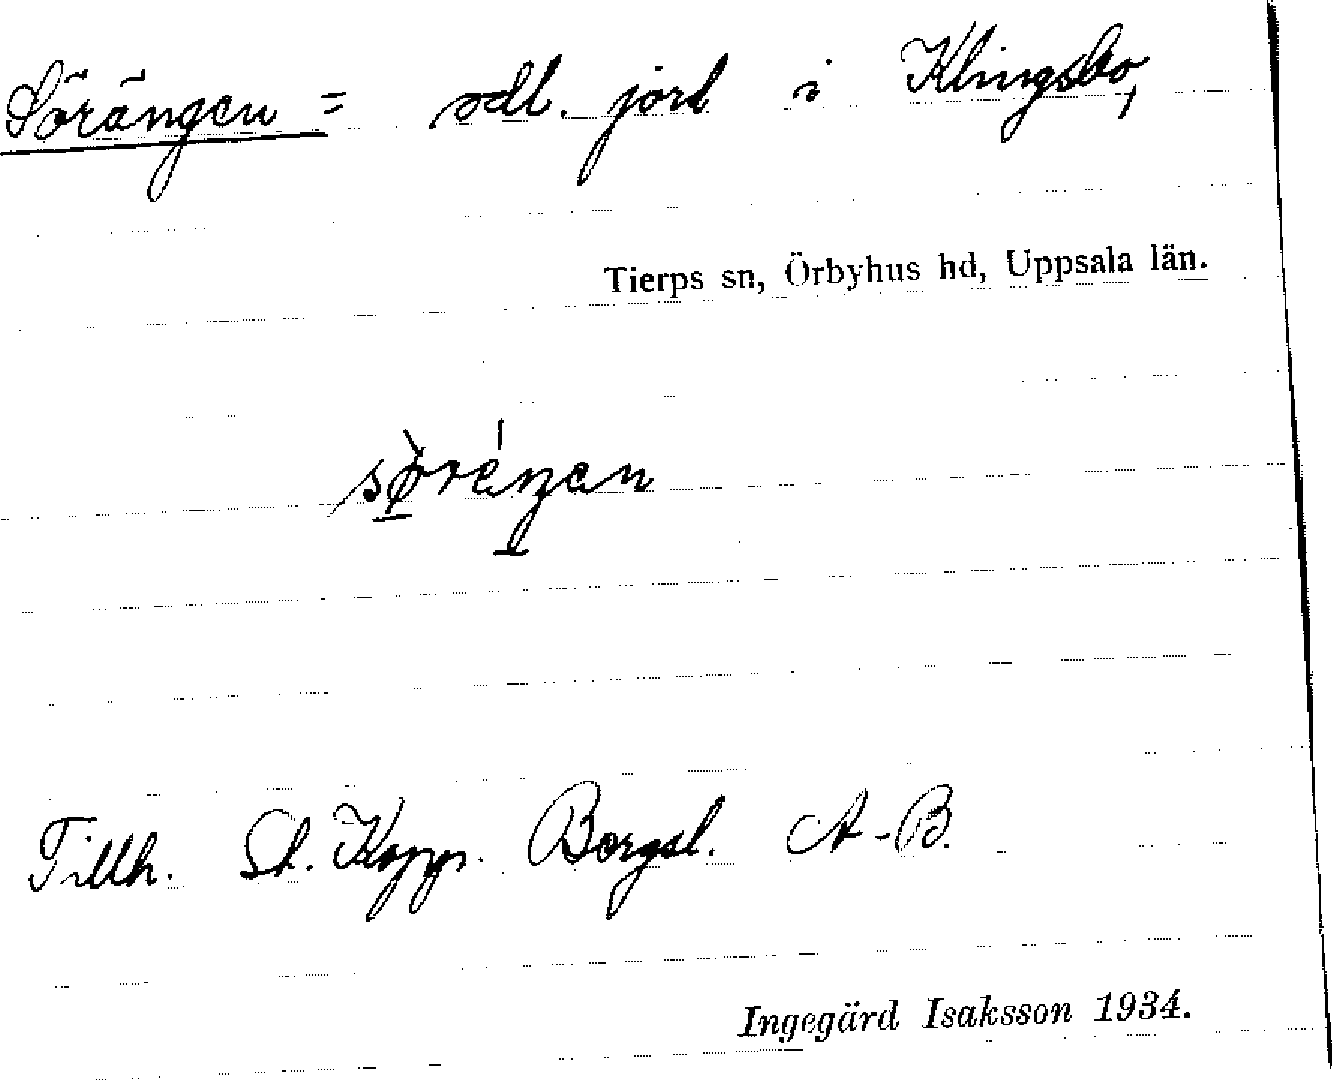 Sörängen = odl. jord i Klingsbo,
Tierps sn, Örbyhus hd, Uppsala län.
sø̀réŋen
Tillh. St. Kopp. Bergsl. A-B.
Ingegärd Isaksson 1934.